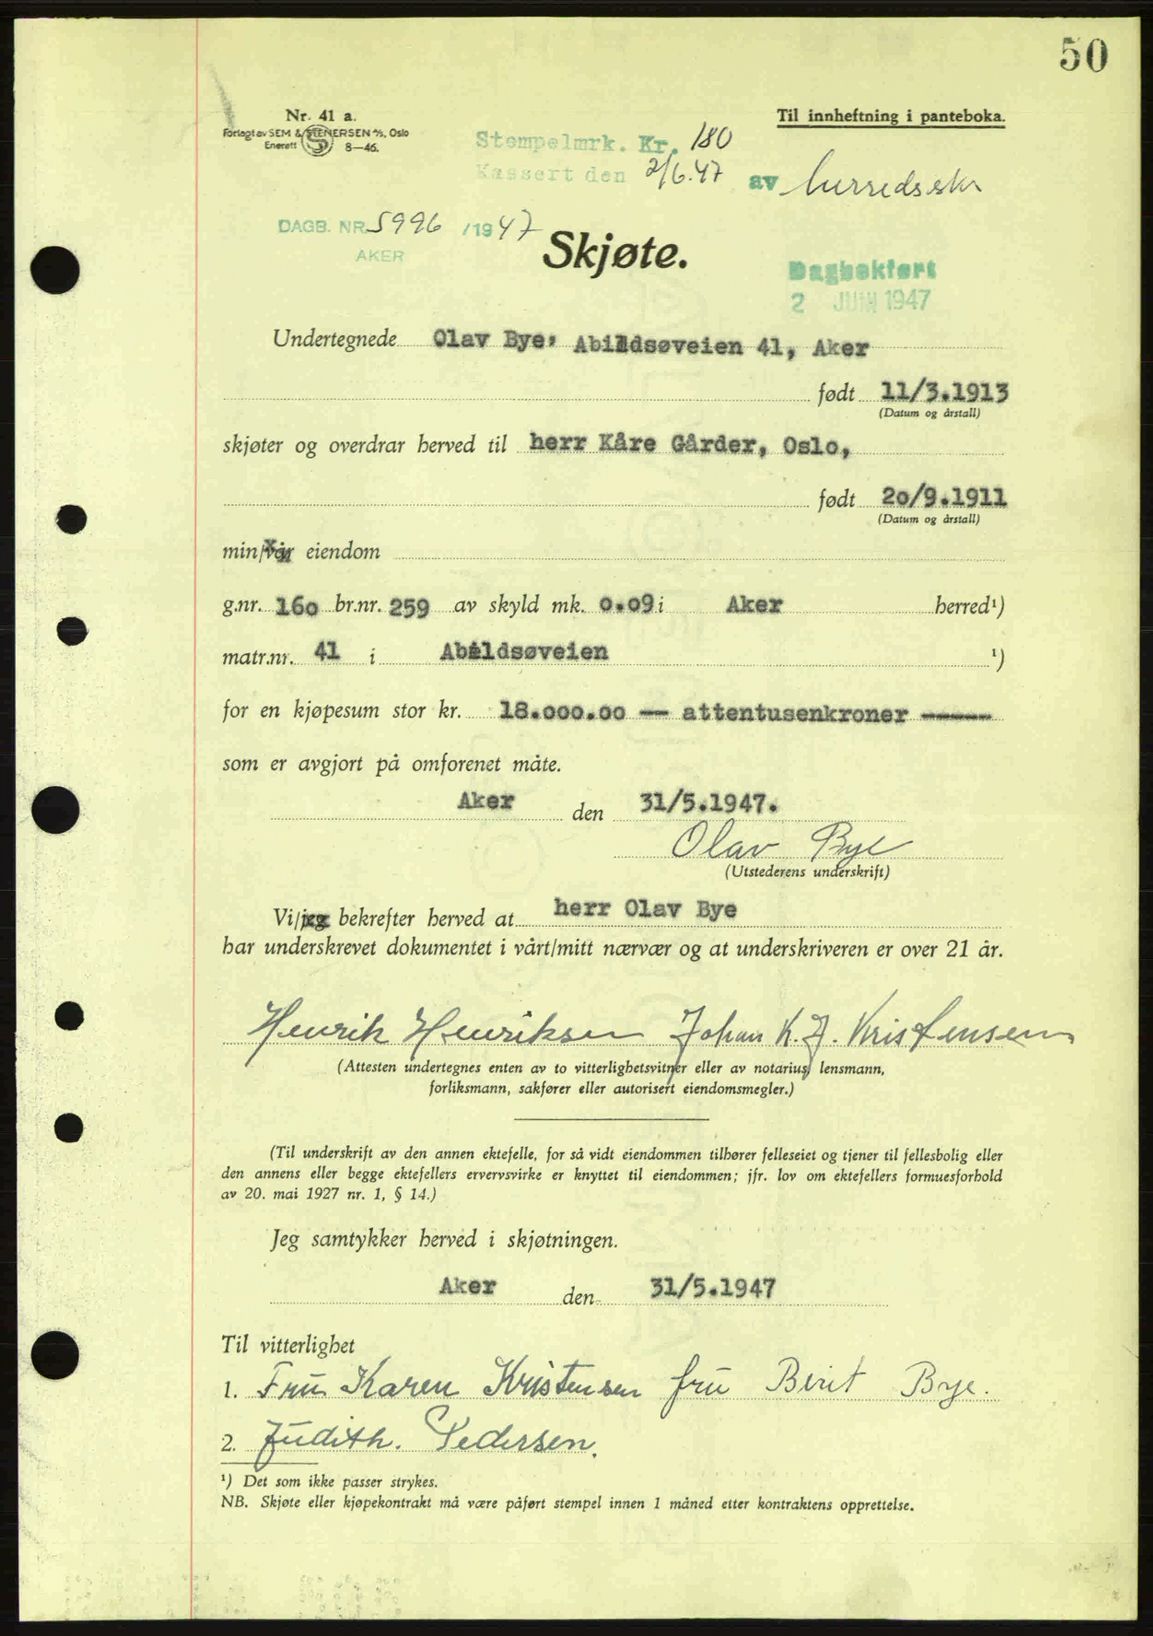 50
Nr. 41 a.
Forlagt av SEM & STENERSEN A/S, Oslo
Enerett 8—46.
Til innheftning i panteboka.
Stempelmrk. Kr. 180
Kassert den 2/6.47 av
DAGB. NR. 5996 /1947
AKER
Skjøte.
Dagbokført
2 JUNI 1947
Undertegnede Olav Bye, Abildsøveien 41, Aker
født 11/3.1913
(Datum og årstall)
skjøter og overdrar herved til herr Kåre Gårder, Oslo,
født 2o/9.1911
(Datum og årstall)
min/vår eiendom
g.nr. 16o br.nr. 259 av skyld mk. o.o9 i Aker herred¹)
matr.nr. 41 i Abildsøveien ¹)
for en kjøpesum stor kr. 18.ooo.oo — attentusenkroner ———
som er avgjort på omforenet måte.
Aker den 31/5.1947.
Olav Bye
(Utstederens underskrift)
Vi/jeg bekrefter herved at herr Olav Bye
har underskrevet dokumentet i vårt/mitt nærvær og at underskriveren er over 21 år.
Henrik Henriksen Johan K. J. Kristensen
(Attesten undertegnes enten av to vitterlighetsvitner eller av notarius, lensmann,
forliksmann, sakfører eller autorisert eiendomsmegler.)
(Til underskrift av den annen ektefelle, for så vidt eiendommen tilhører felleseiet og tjener til fellesbolig eller
den annens eller begge ektefellers ervervsvirke er knyttet til eiendommen; jfr. lov om ektefellers formuesforhold
av 20. mai 1927 nr. 1, § 14.)
Jeg samtykker herved i skjøtningen.
Aker den 31/5.1947
Til vitterlighet
1. Fru Karen Kristensen fru Berit Bye.
2. Judith. Pedersen.
¹) Det som ikke passer strykes.
NB. Skjøte eller kjøpekontrakt må være påført stempel innen 1 måned etter kontraktens opprettelse.